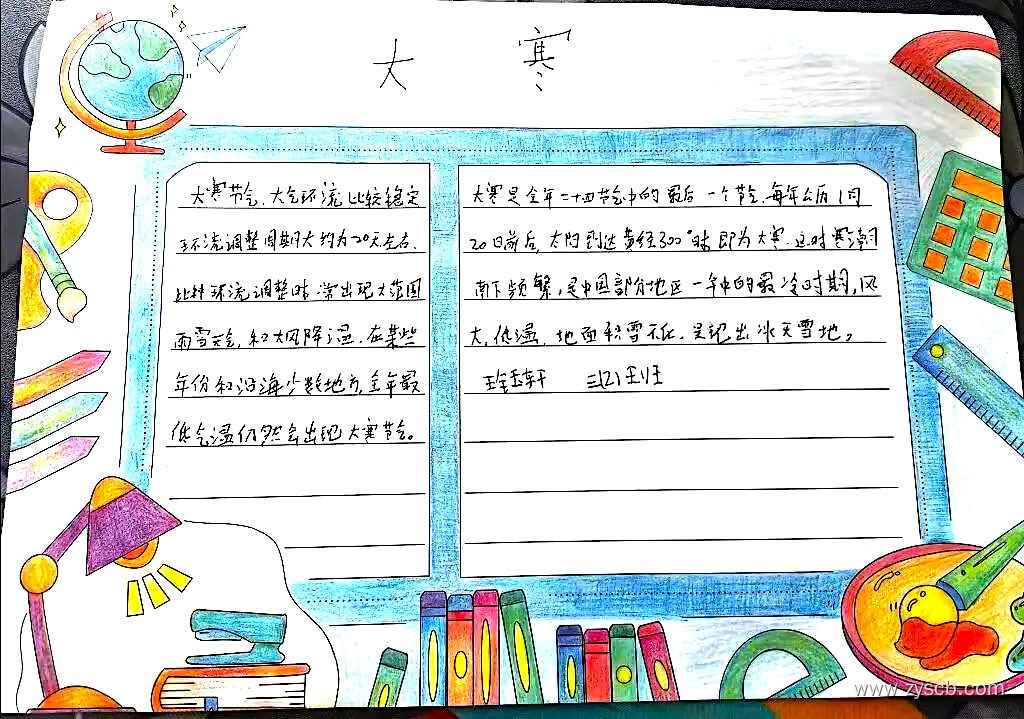 大寒
大寒节气,大气环流比较稳定
环流调整周期大约为20天左右.
此种环流调整时,常出现大范围
雨雪天气,和大风降温.在某些
年份和沿海少数地方,全年最
低气温仍然会出现大寒节气。
大寒是全年二十四节气中的最后一个节气.每年公历1月
20日前后,太阳到达黄经300°时即为大寒.这时寒潮
南下频繁,是中国部分地区一年中的最冷时期,风
大,低温,地面积雪不化,呈现出冰天雪地。
轩 三(2)班
www.zyscb.com